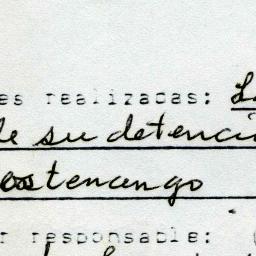 es realizadas: L
de su detenci
ostenango
r responsable: (